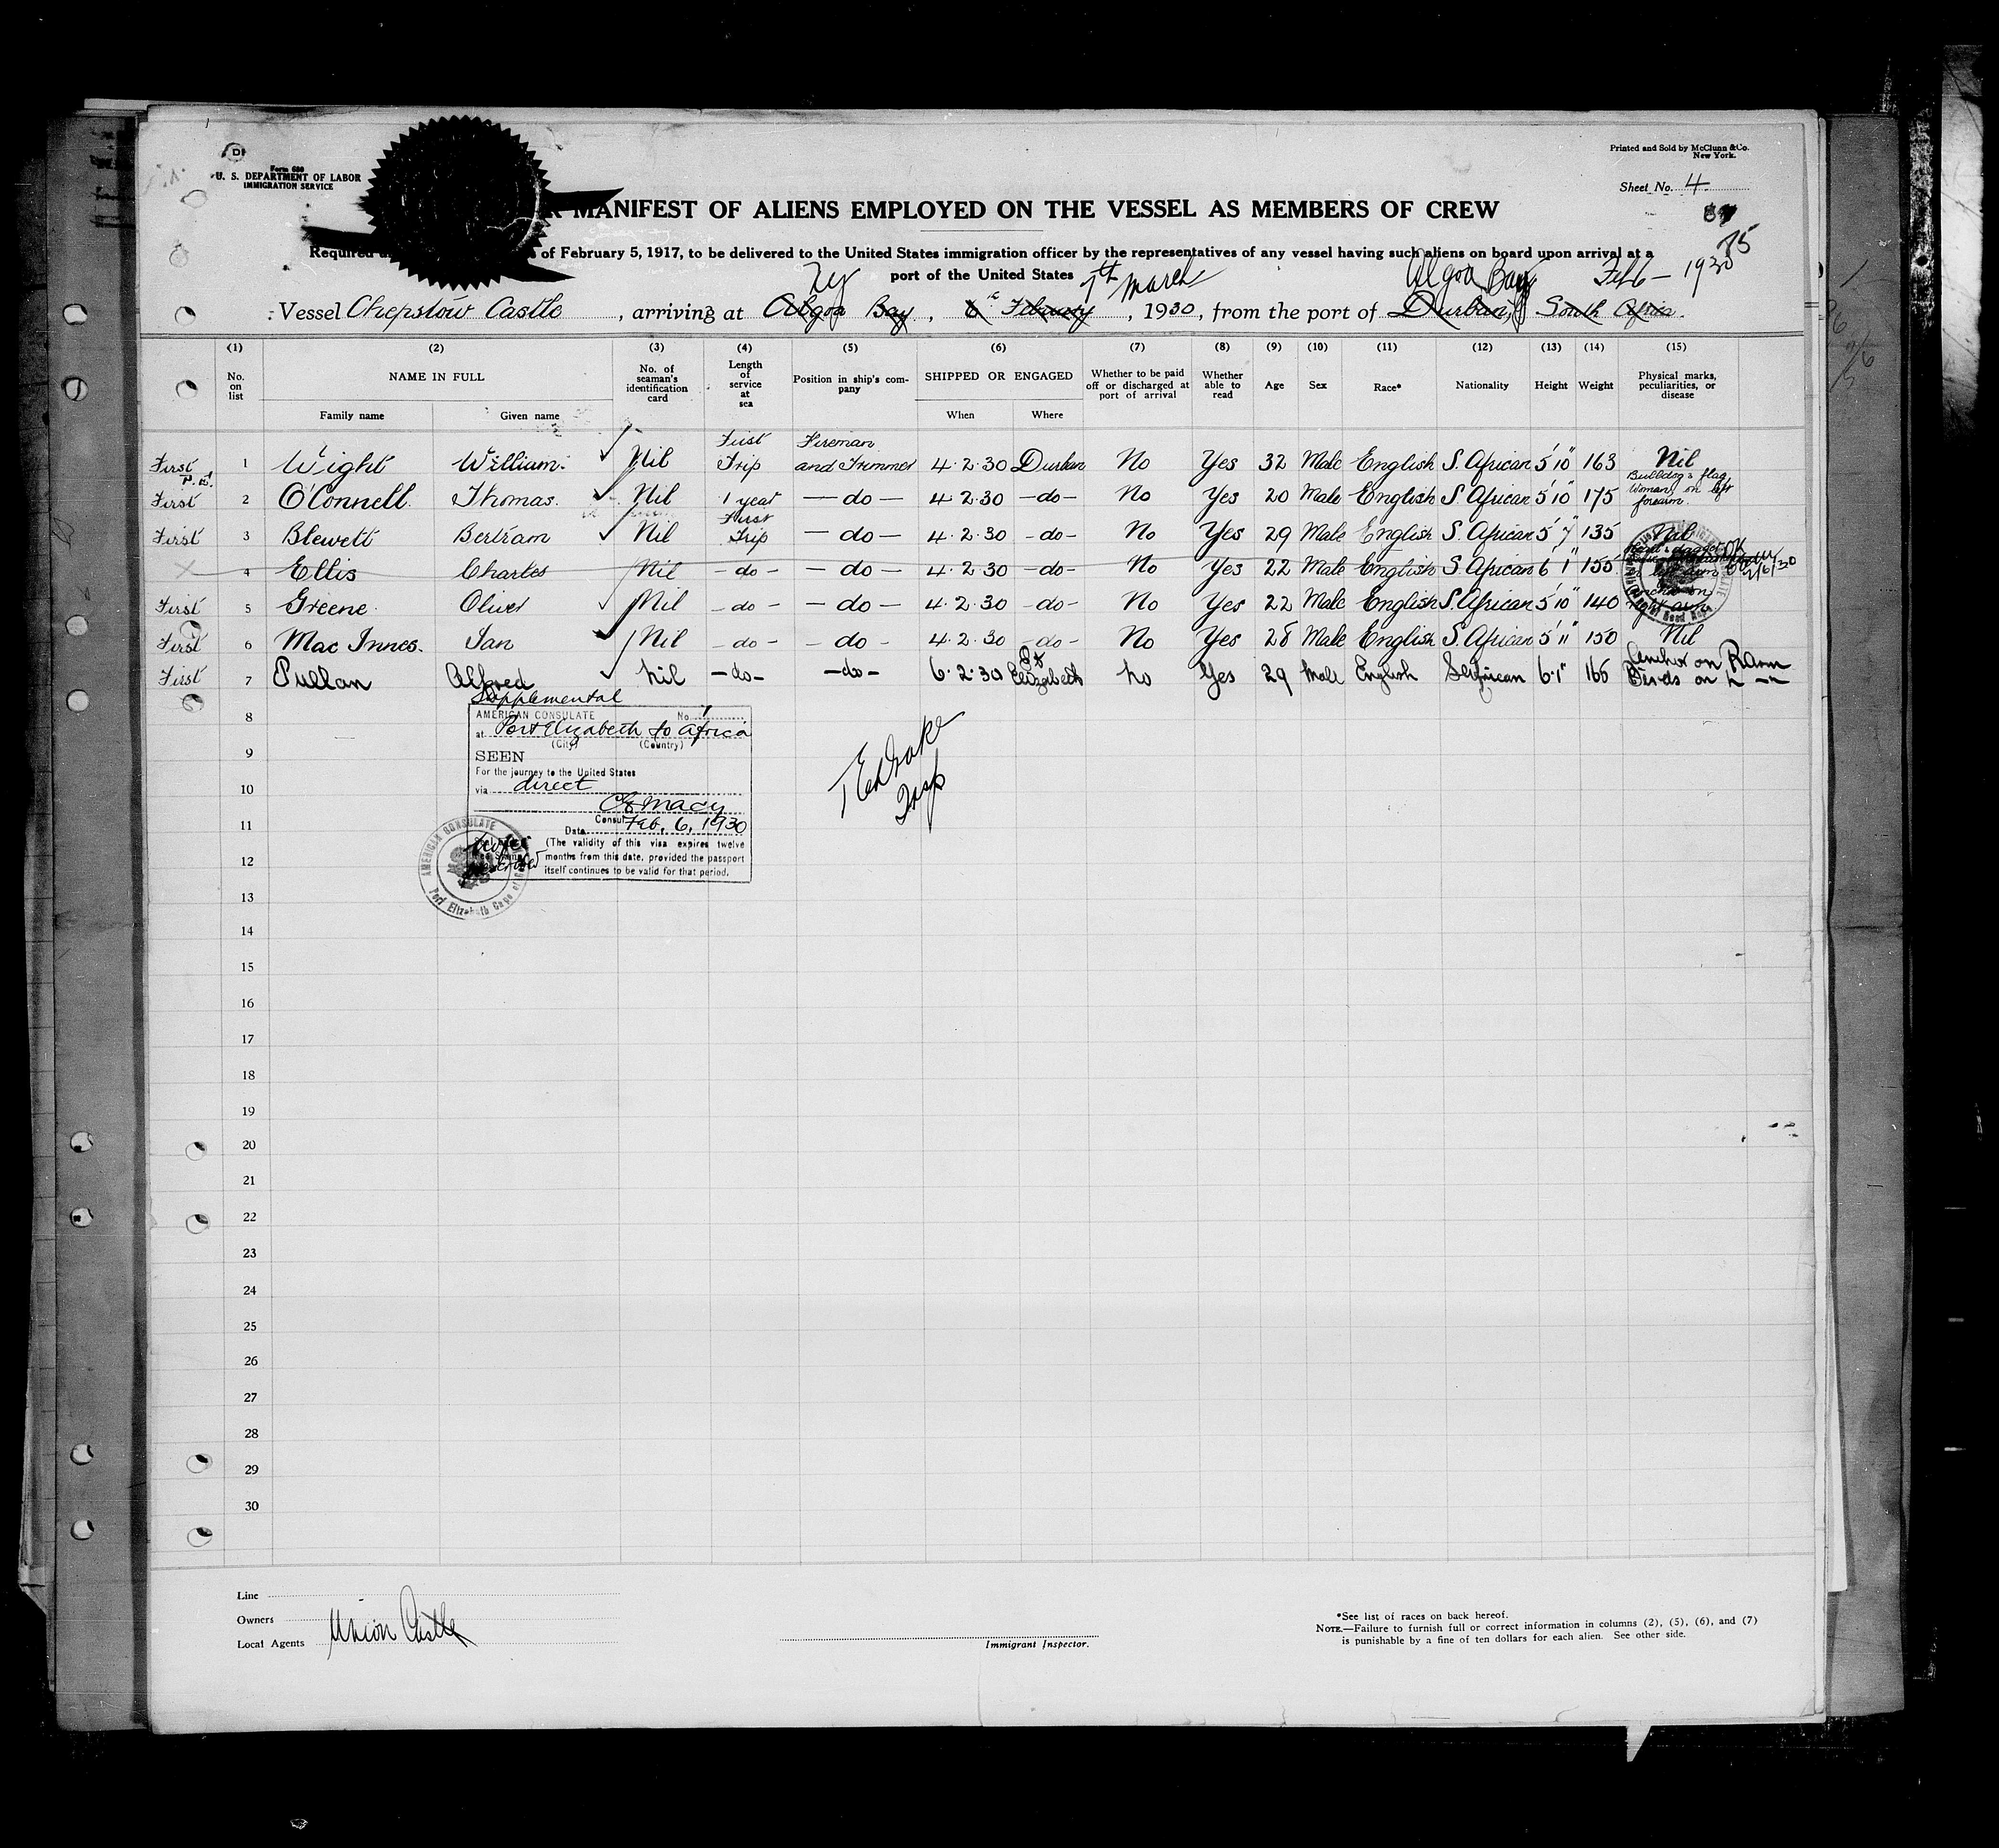 Form 680
U. S. DEPARTMENT OF LABOR
IMMIGRATION SERVICE
Printed and Sold by McClunn & Co.
New York.
Sheet No. 4
85
MANIFEST OF ALIENS EMPLOYED ON THE VESSEL AS MEMBERS OF CREW
Required of February 5, 1917, to be delivered to the United States immigration officer by the representatives of any vessel having such aliens on board upon arrival at a
port of the United States
NY 7th March Algoa Bay Feb 6 - 1930
Vessel Chepstow Castle, arriving at Algoa Bay, 6th February, 1930, from the port of Durban, South Africa.
(1) (2) (3) (4) (5) (6) (7) (8) (9) (10) (11) (12) (13) (14) (15)
No. on list NAME IN FULL No. of seaman's identification card Length of service at sea Position in ship's company SHIPPED OR ENGAGED Whether to be paid off or discharged at port of arrival Whether able to read Age Sex Race* Nationality Height Weight Physical marks, peculiarities, or disease
Family name Given name When Where
First 1 Wight William Nil First Trip Fireman and Trimmer 4.2.30 Durban No Yes 32 Male English S. African 5'10" 163 Nil
P.E.
First 2 O'Connell Thomas. Nil 1 year - do - 4.2.30 - do - No Yes 20 Male English S. African 5'10" 175 Bulldog & flag Woman on left forearm.
First 3 Blewett Bertram Nil First Trip - do - 4.2.30 - do - No Yes 29 Male English S. African 5'7" 135 Nil
X 4 Ellis Charles Nil - do - - do - 4.2.30 - do - No Yes 22 Male English S. African 6'1" 155
First 5 Greene Oliver Nil - do - - do - 4.2.30 - do - No Yes 22 Male English S. African 5'10" 140 right arm
First 6 Mac Innes. Ian Nil - do - - do - 4.2.30 - do - No Yes 28 Male English S. African 5'11" 150 Nil
First 7 Pullan Alfred Nil - do - - do - 6.2.30 Pt Elizabeth No Yes 29 Male English S African 6'1" 165 Anchor on R arm Birds on L - " -
Supplemental
8
AMERICAN CONSULATE No. 1
at Port Elizabeth So Africa
(City) (Country)
9
SEEN
For the journey to the United States
10
via direct
C E Macy
Consul
11
Date Feb. 6, 1930
(The validity of this visa expires twelve
12
months from this date, provided the passport
itself continues to be valid for that period.
AMERICAN CONSULATE
Port Elizabeth Cape of
Drake
Insp
13
14
15
16
17
18
19
20
21
22
23
24
25
26
27
28
29
30
Line
Owners
Local Agents Union Castle
Immigrant Inspector.
*See list of races on back hereof.
NOTE.—Failure to furnish full or correct information in columns (2), (5), (6), and (7)
is punishable by a fine of ten dollars for each alien. See other side.